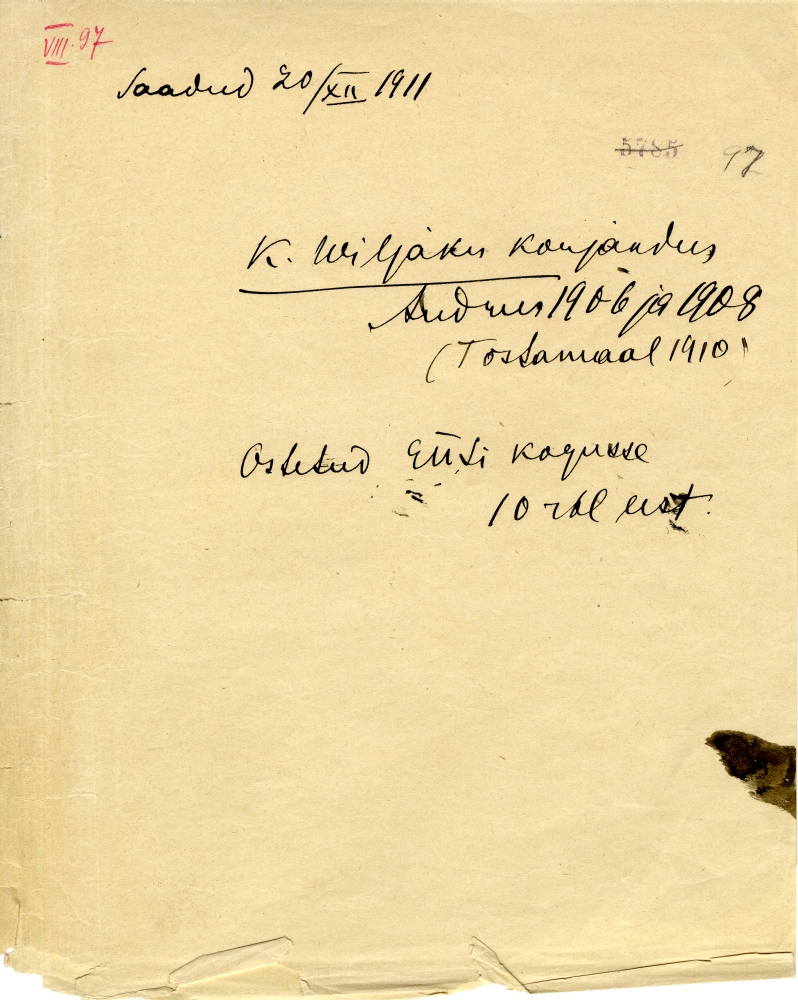 VIII. 97
Saadud 20/XII 1911
5785 97
K. Wiljaku korjandus
Audrus 1906 ja 1908
(Tostamaal 1910)
Ostetud EÜSi kogusse
10 rbl eest.